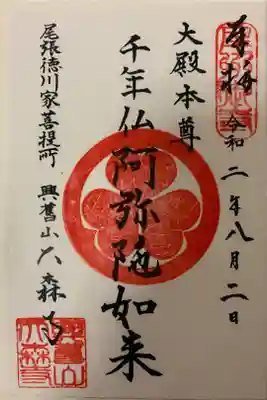 奉拝
令和二年八月二日
大殿本尊
千年仏阿弥陀如来
尾張徳川家菩提所
興旧山大森寺